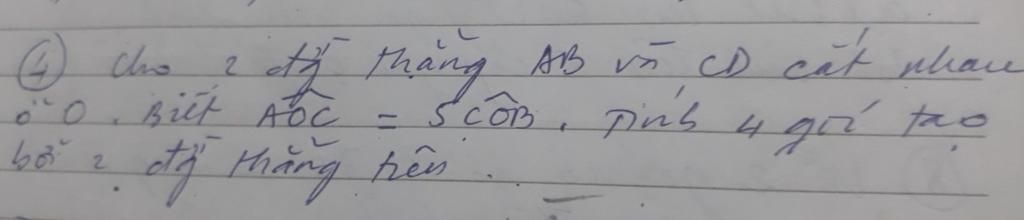 ④ Cho 2 đg̃ thẳng AB và CD cắt nhau
ở O. Biết AÔC = 5 CÔB. Tính 4 góc tạo
bởi 2 đg̃ thẳng trên.